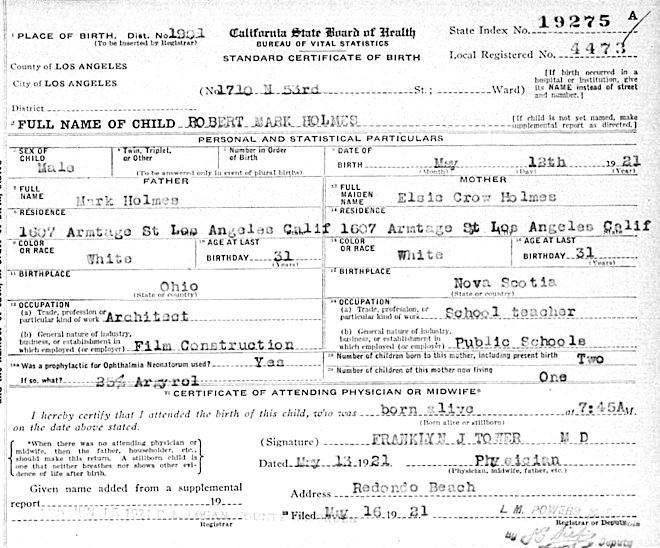 ¹ PLACE OF BIRTH. Dist. No. 1901
(To be Inserted by Registrar)
County of LOS ANGELES
City of LOS ANGELES
District
California State Board of Health
BUREAU OF VITAL STATISTICS
STANDARD CERTIFICATE OF BIRTH
State Index No. 19275 A
Local Registered No. 4473
(No. 1710 N 53rd St.; Ward)
[If birth occurred in a
hospital or institution, give
its NAME instead of street
and number.]
² FULL NAME OF CHILD ROBERT MARK HOLMES
[If child is not yet named, make
supplemental report as directed.]
PERSONAL AND STATISTICAL PARTICULARS
³ SEX OF CHILD Male
⁴ Twin, Triplet, or Other
⁵ Number in Order of Birth
(To be answered only in event of plural births)
⁶ DATE OF BIRTH May 12th 1921
(Month) (Day) (Year)
FATHER
⁷ FULL NAME Mark Holmes
MOTHER
¹³ FULL MAIDEN NAME Elsie Crow Holmes
⁸ RESIDENCE
1607 Armtage St Los Angeles Calif
¹⁴ RESIDENCE
1607 Armtage St Los Angeles Calif
⁹ COLOR OR RACE White
¹⁰ AGE AT LAST BIRTHDAY 31
(Years)
¹⁵ COLOR OR RACE White
¹⁶ AGE AT LAST BIRTHDAY 31
(Years)
¹¹ BIRTHPLACE
Ohio
(State or country)
¹⁷ BIRTHPLACE
Nova Scotia
(State or country)
¹² OCCUPATION
(a) Trade, profession or
particular kind of work Architect
(b) General nature of industry,
business, or establishment in
which employed (or employer) Film Construction
¹⁸ OCCUPATION
(a) Trade, profession, or
particular kind of work School teacher
(b) General nature of industry,
business, or establishment in
which employed (or employer) Public Schools
Was a prophylactic for Ophthalmia Neonatorum used? Yes
If so, what? 25% Argyrol
Number of children born to this mother, including present birth Two
Number of children of this mother now living One
CERTIFICATE OF ATTENDING PHYSICIAN OR MIDWIFE*
I hereby certify that I attended the birth of this child, who was born alive at 7:45AM
(Born alive or stillborn)
on the date above stated.
*When there was no attending physician or
midwife, then the father, householder, etc.,
should make this return. A stillborn child is
one that neither breathes nor shows other evi-
dence of life after birth.
(Signature) FRANKLYN J TOWER M D
Dated May 13 1921 Physician
(Physician, midwife, father, etc.)
Given name added from a supplemental
report 19
Registrar
Address Redondo Beach
Filed May 16 1921 L M POWERS
Registrar or Deputy
By
Deputy